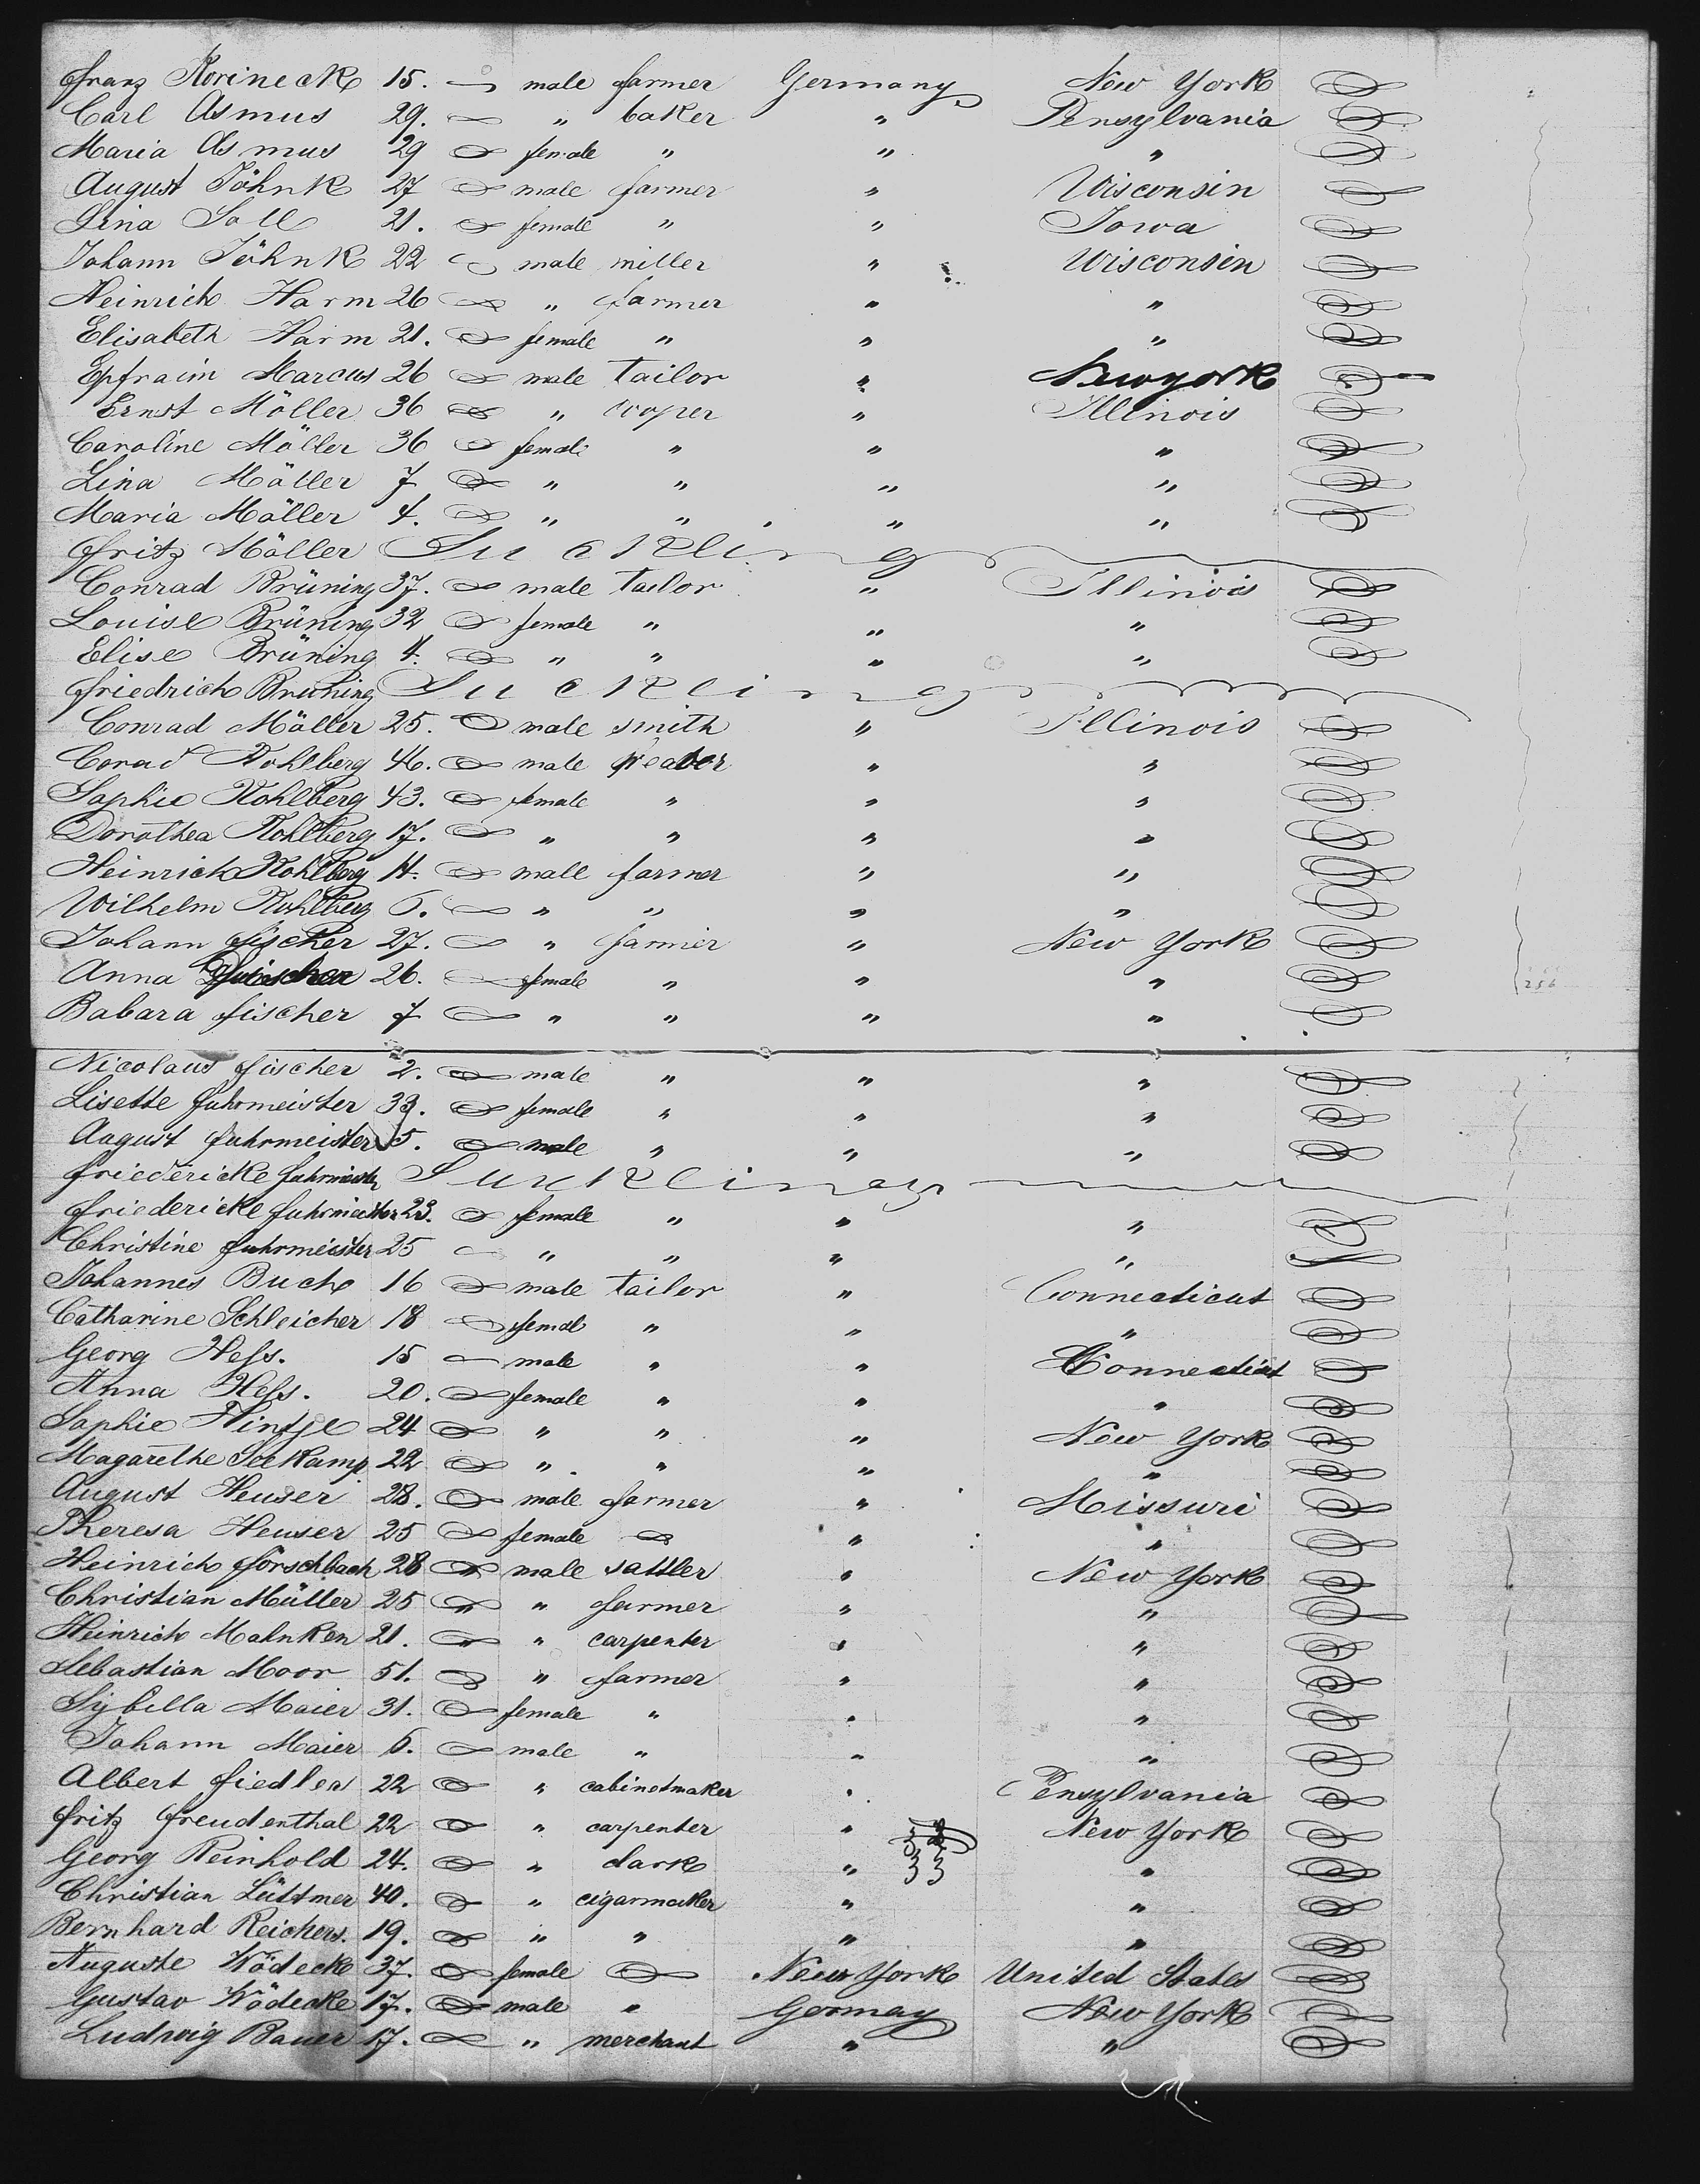 Franz Korineck 15. male farmer Germany New York
Carl Asmus 29. " baker " Pensylvania
Maria Asmus 29 female " " "
August Jöhnk 27 male farmer " Wisconsin
Lina Soll 21. female " " Iowa
Johann Jöhnk 22 male miller " Wisconsin
Heinrich Harm 26 " farmer " "
Elisabeth Harm 21. female " " "
Epfraim Marcus 26 male tailor " New york
Ernst Möller 36 " cooper " Illinois
Caroline Möller 36 female " " "
Lina Möller 7 " " " "
Maria Möller 4. " " " "
Fritz Möller Suckling
Conrad Brüning 37. male tailor " Illinois
Louise Brüning 32 female " " "
Elise Brüning 4. " " " "
Friedrich Brüning Suckling
Conrad Möller 25. male smith " Illinois
Conrad Kohlberg 46. male " "
Sophie Kohlberg 43. female " " "
Dorothea Kohlberg 17. " " " "
Heinrich Kohlberg 14. male farmer " "
Wilhelm Kohlberg 6. " " " "
Johann Fischer 27. " farmer " New York
Anna Fischer 26. female " " "
Babara Fischer 7 " " " "
Nicolaus Fischer 2. male " " "
Lisette Fuhrmeister 33. female " " "
August Fuhrmeister 5. male " " "
Friedericke Fuhrmeister Suckling
Friedericke Fuhrmeister 23. female " " "
Christine Fuhrmeister 25 " " " "
Johannes Buch 16 male tailor " Connecticut
Catharine Schleicher 18 femal " " "
Georg Heſs. 15 male " " Connecticut
Anna Heſs. 20. female " " "
Sophie Hintze 24 " " " New York
Magarethe Seekamp 22 " " " "
August Heuser 28. male farmer " Missuri
Theresa Heuser 25 female " "
Heinrich Förschbach 28 male sattler " New York
Christian Müller 25 " farmer " "
Heinrich Mahnken 21. " carpenter " "
Sebastian Moor 51. " farmer " "
Sybilla Maier 31. female " " "
Johann Maier 6. male " " "
Albert Fiedler 22 " cabinetmaker " Pensylvania
Fritz Freudenthal 22 " carpenter " New York
Georg Reinhold 24. " clark " 33 "
Christian Lüttmer 40. " cigarmaker " "
Bernhard Reichers. 19. " " " "
Auguste Wödecke 37. female New York United States
Gustav Wödecke 17. male " Germay New York
Ludwig Bauer 17. " merchant " "